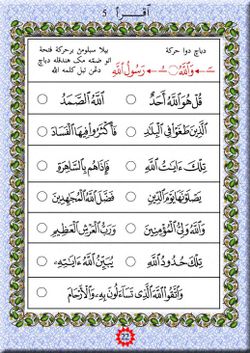 اقرأ 5
دباچ دوا حركة
بيلا سبلومڽ برحركة فتحة
اتو ضمّه مک هندقله دباچ
دڠن تبل كلمه الله
وَاللَّهُ ← رَسُولُ اللَّهِ
قُلْ هُوَ اللَّهُ أَحَدٌ ○ اللَّهُ الصَّمَدُ ○
الَّذِينَ طَغَوْا فِي الْبِلَادِ ○ فَأَكْثَرُوا فِيهَا الْفَسَادَ ○
تِلْكَ ءَايَٰتُ اللَّهِ ○ فَإِذَا هُم بِالسَّاهِرَةِ ○
يَصْلَوْنَهَا يَوْمَ الدِّينِ ○ فَضَّلَ اللَّهُ الْمُجَٰهِدِينَ ○
وَاللَّهُ وَلِيُّ الْمُؤْمِنِينَ ○ وَرَبُّ الْعَرْشِ الْعَظِيمِ ○
تِلْكَ حُدُودُ اللَّهِ ○ يُبَيِّنُ اللَّهُ ءَايَٰتِهِ ○
وَاتَّقُوا اللَّهَ الَّذِي تَسَاءَلُونَ بِهِ وَالْأَرْحَامَ
22